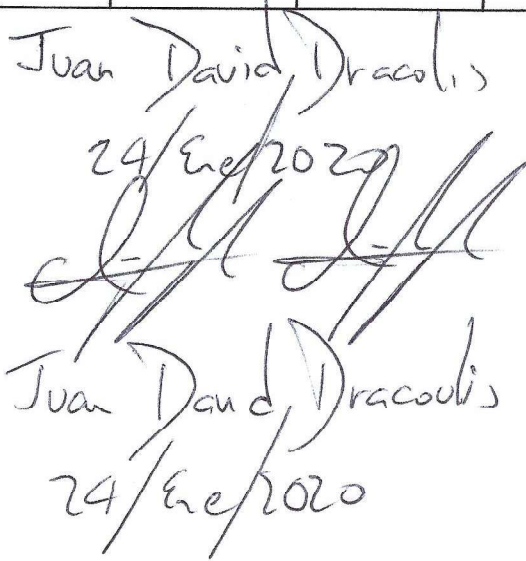 Juan David Dracolis
24/Ene/2020
Juan David Dracoulis
24/Ene/2020